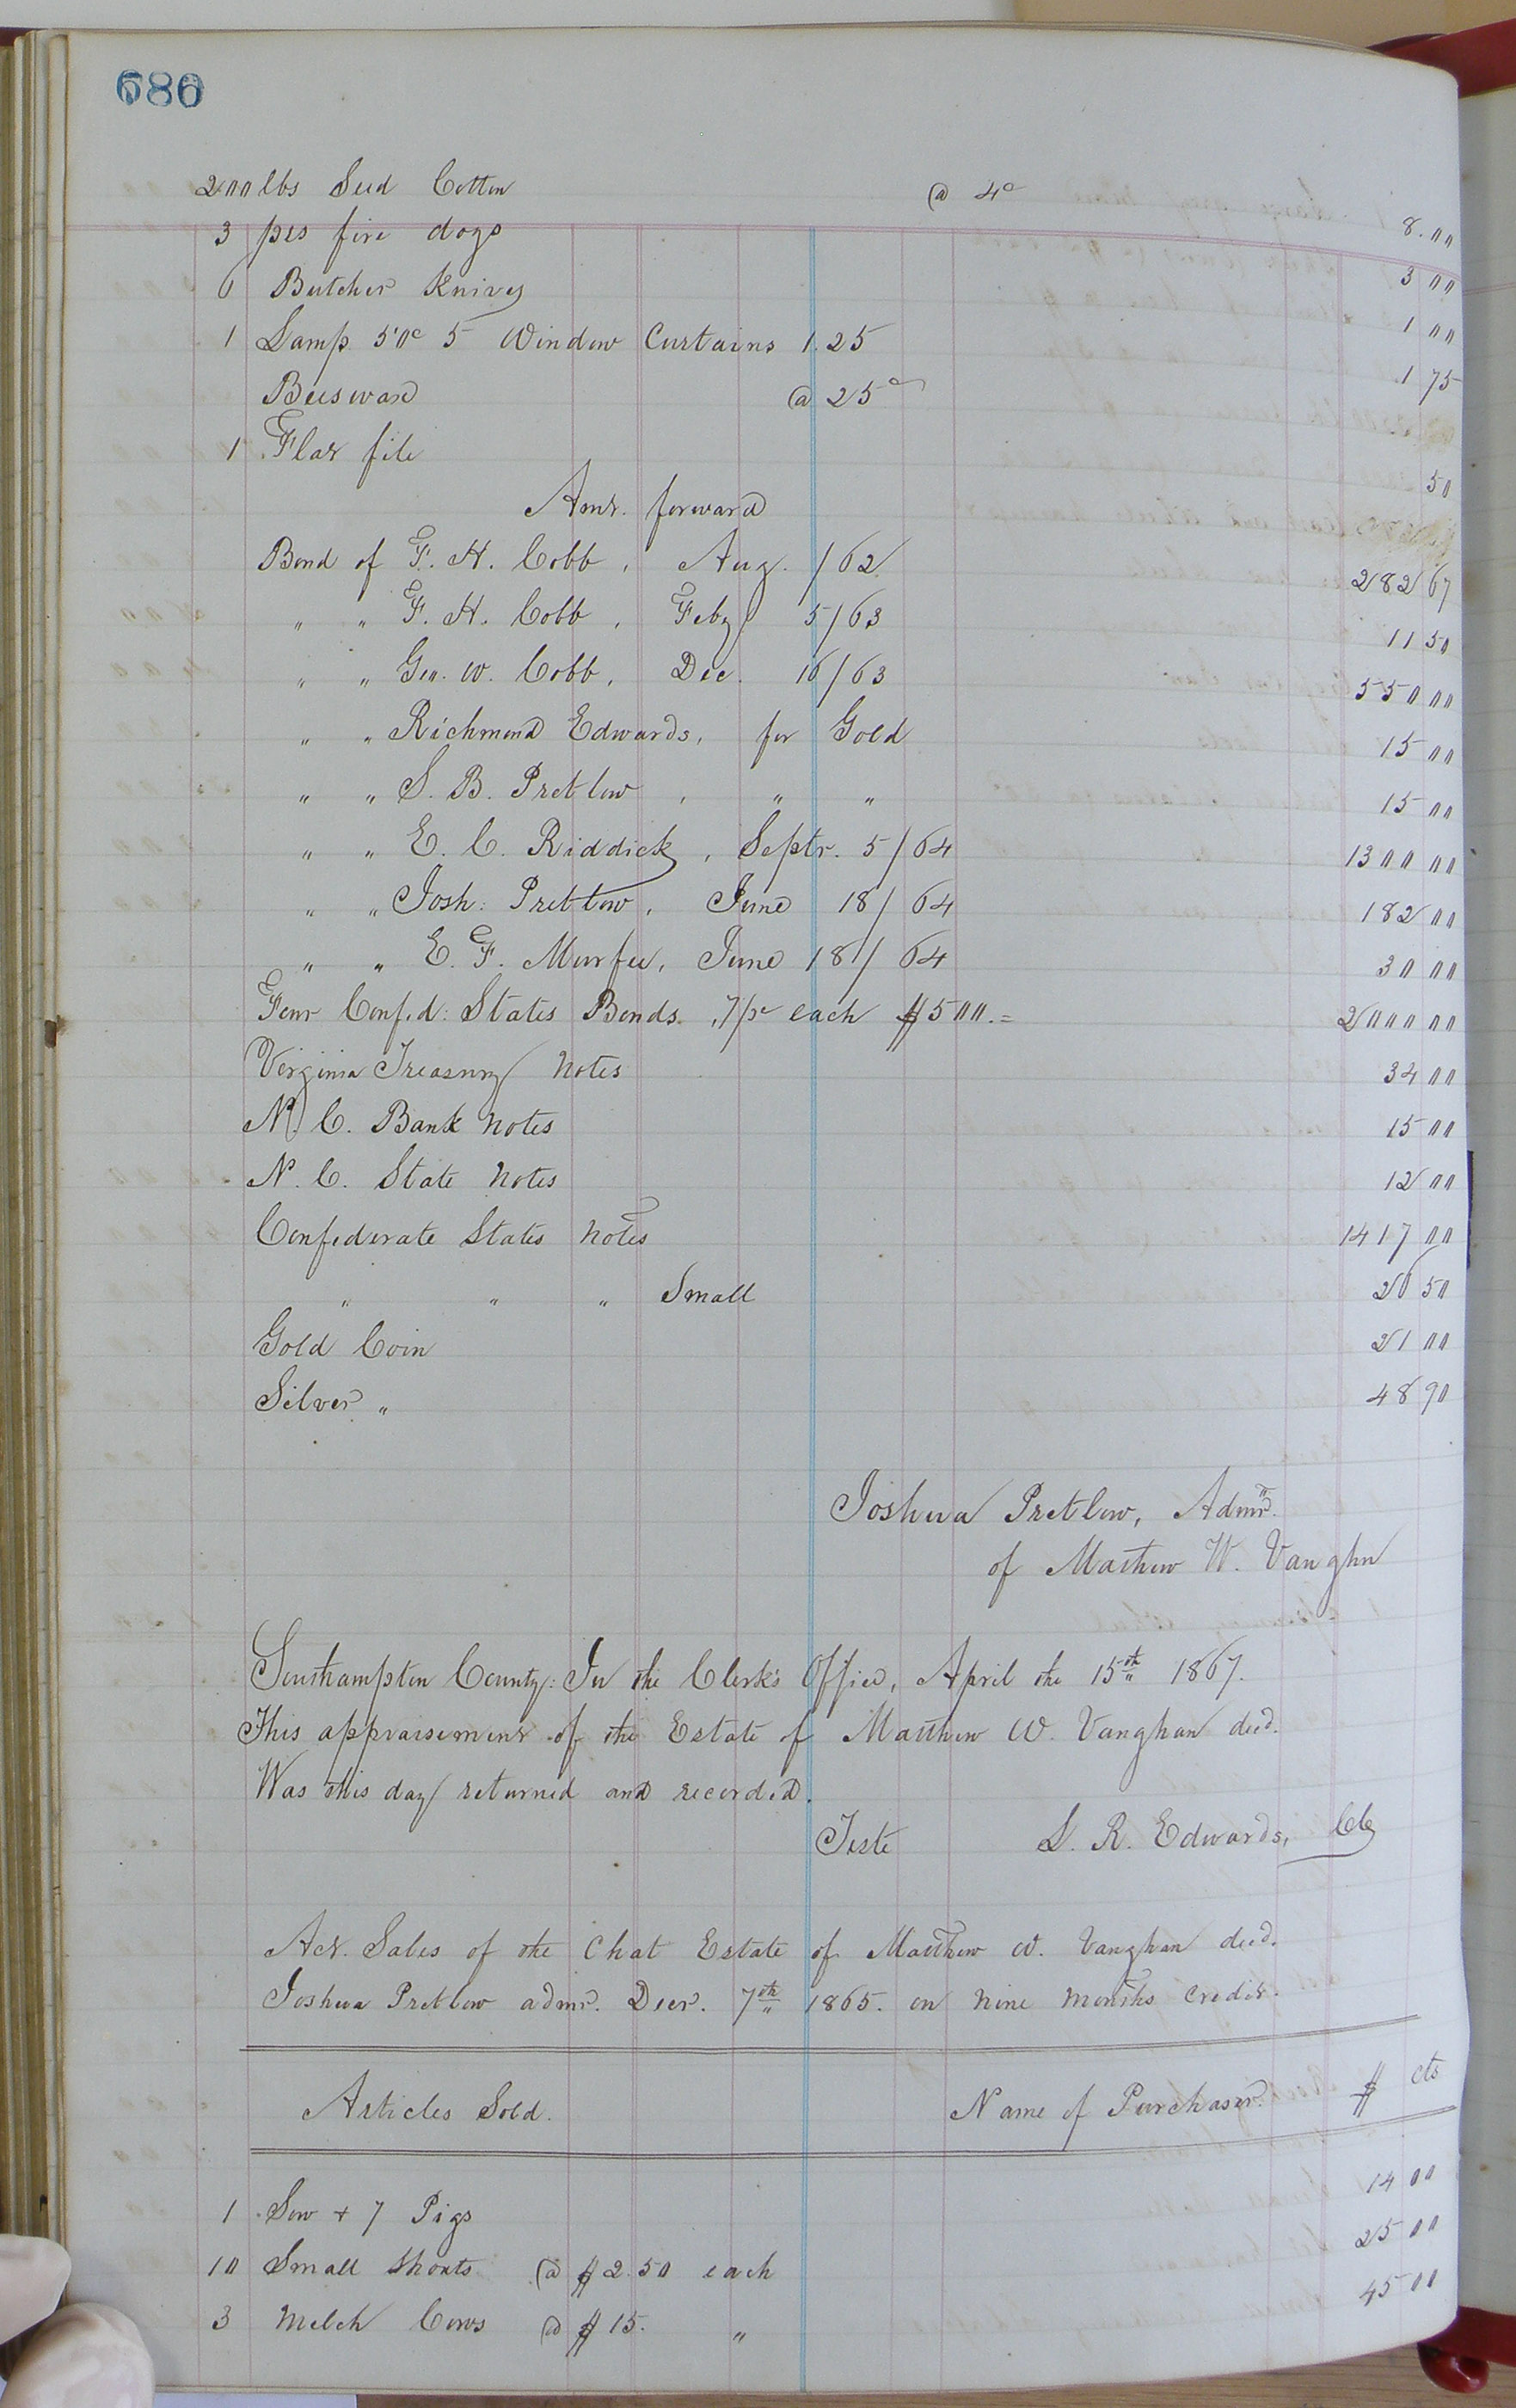 686
200 lbs Seed Cotton @ 4c 8.00
3 pes fire dogs 3 00
6 Butcher Knives 1 00
1 Lamp 50c 5 Window Curtains 1.25 1 75
Beeswax @ 25c
1 Flat file 50
Amt. forward
Bond of F. H. Cobb, Aug. /62 282 67
" " F. H. Cobb, Feby 5/63 11 50
" " Geo. W. Cobb, Dec. 16/63 550 00
" " Richmond Edwards, for Gold 15 00
" " S. B. Pretlow, " " 15 00
" " E. C. Riddick, Septr. 5/64 1300 00
" " Josh: Pretlow, June 18/64 182 00
" " E. F. Murfee, June 18/64 30 00
Four Confed: States Bonds, 7pc each $500.= 2000 00
Virginia Treasury Notes 34 00
N. C. Bank Notes 15 00
N. C. State Notes 12 00
Confederate States Notes 1417 00
" " " Small 26 50
Gold Coin 21 00
Silver " 48 90
Joshua Pretlow, Admr.
of Mathew W. Vaughn
Southampton County: In the Clerk's Office, April the 15th 1867.
This appraisement of the Estate of Matthew W. Vaughan decd.
Was this day returned and recorded.
Teste L. R. Edwards, Clk
Act. Sales of the Chat Estate of Matthew W. Vaughan decd.
Joshua Pretlow admr. Decr. 7th 1865. on nine months credit.
Articles Sold. Name of Purchaser. $ cts
1 Sow + 7 Pigs 14 00
10 Small Shoats @ $2.50 each 25 00
3 Milch Cows @ $15. " 45 00